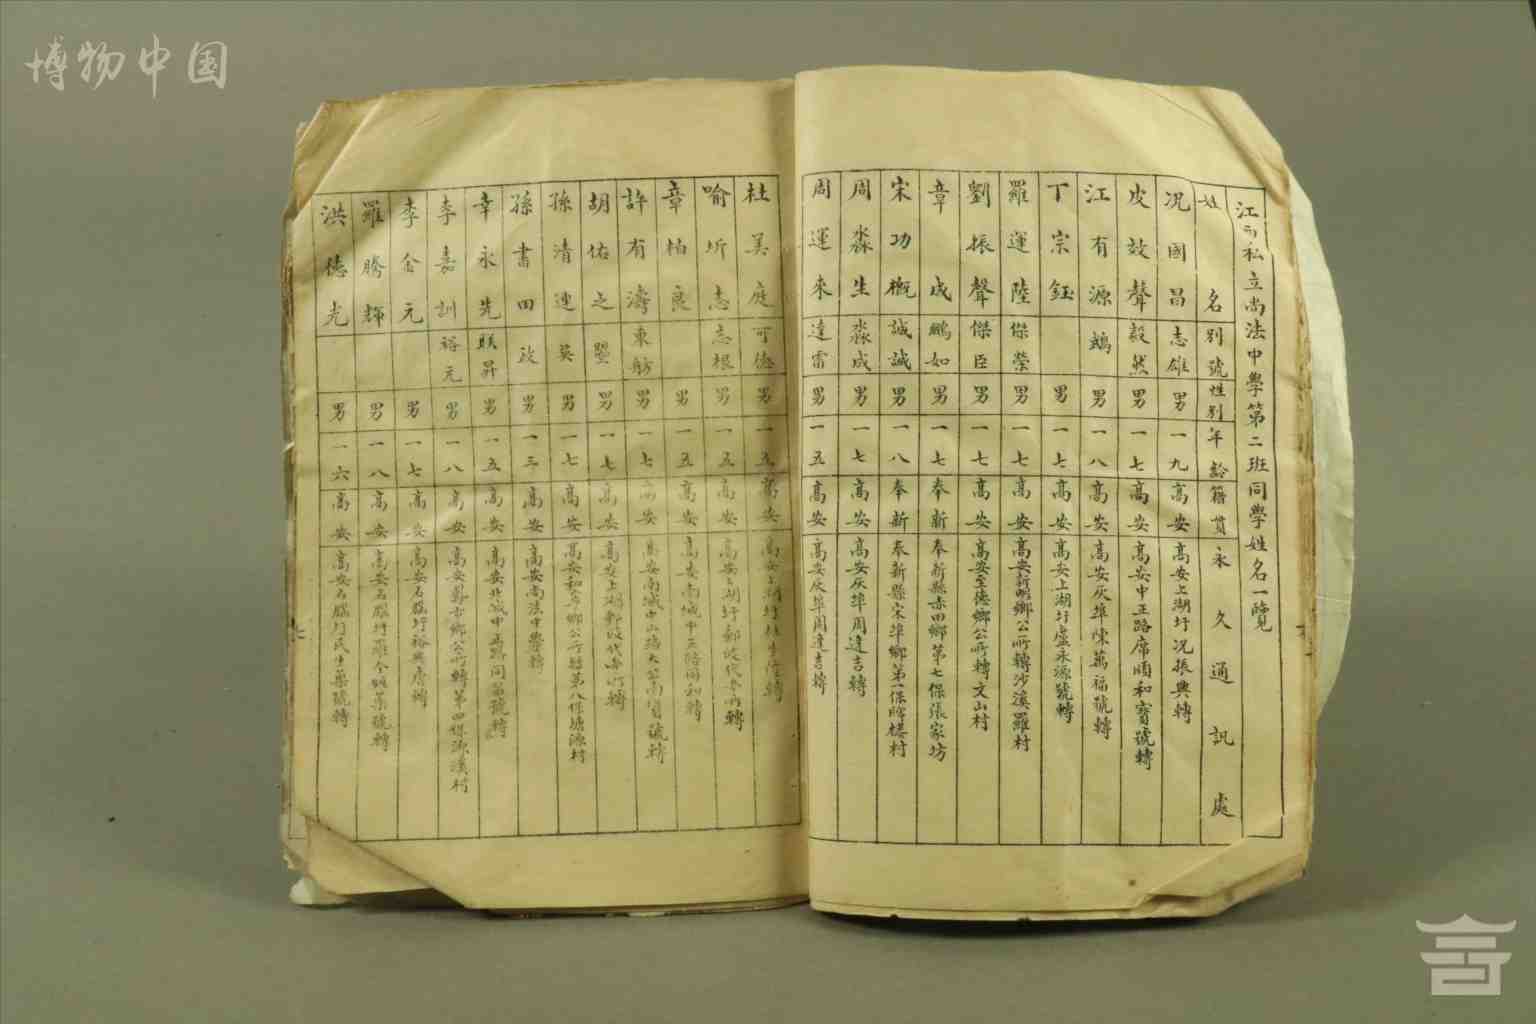 博物中国
江西私立尚法中學第二班同學姓名一覽
姓名 別號 性別 年齡 籍貫 永久通訊處
況國昌 志雄 男 一九 高安 高安上湖圩況振興轉
皮效聲 毅然 男 一七 高安 高安中正路席順和寶號轉
江有源 鵡 男 一八 高安 高安灰埠陳萬福號轉
丁宗鈺 男 一七 高安 高安上湖圩盧永源號轉
羅運陸 傑榮 男 一七 高安 高安新明鄉公所轉沙溪羅村
劉振聲 傑臣 男 一七 高安 高安至德鄉公所轉文山村
章成 鵬如 男 一七 奉新 奉新縣赤田鄉第七保張家坊
宋功概 誠誠 男 一八 奉新 奉新縣宋埠鄉第一保樓村
周淼生 淼成 男 一七 高安 高安灰埠周達吉轉
周運來 達雷 男 一五 高安 高安灰埠周達吉轉
杜美庭 可德 男 一五 高安 高安上湖圩杜生隆轉
喻圻志 志根 男 一五 高安 高安上湖圩郵政代辦所轉
章柏良 男 一五 高安 高安南城中正路同和轉
許有濤 東舫 男 一七 高安 高安南城中山路大公南寶號轉
胡佑之 男 一七 高安 高安上湖郵政代辦所轉
孫清連 英 男 一七 高安 高安和亭鄉公所轉第八保塘源村
孫書田 政 男 一三 高安 高安尚法中學轉
幸永先 朕昇 男 一五 高安 高安北城中正路同第號轉
李嘉訓 裕元 男 一八 高安 高安鄉公所轉第四保源溪村
李金元 男 一七 高安 高安石腦圩裕興房轉
羅騰輝 男 一八 高安 高安石腦圩羅全順藥號轉
洪德光 男 一六 高安 高安石腦圩民生藥號轉